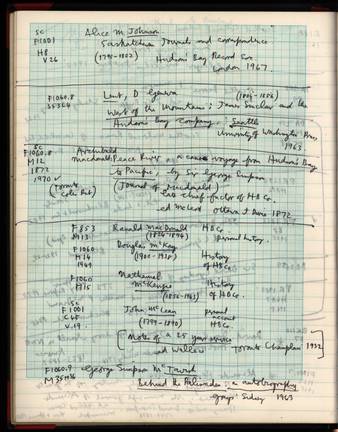 SC Alice M Johnson
F1001 Saskatchewan Journals and correspondence
H8 (1795-1802) Hudson's Bay Record Soc
V26 London 1967.
F1060.8 Lent, D Geneva (1806-1856)
S53L4 West of the Mountains: James Sinclair and the
Hudson's Bay Company. Seattle
University of Washington Press,
1963
SC
F1060.8 Archibald
M12 Macdonald Peace River, a canoe voyage from Hudson's Bay
1872 to Pacific, by Sir George Simpson
1970 ✓ (Journal of Macdonald)
(Toronto Chief factor of HBCo.
ed McLeod Ottawa J Durie 1872
F853 Ranald MacDonald HBCo.
M13 (1824-1894) personal history.
F1060 Douglas McKay
M14 History
1949 of HBCo
F1060 Nathaniel
M15 McKenzie History
of HBCo.
SC
F1001 John McLean personal account
C45 (1799-1890) HBCo.
V.19. [Notes of a 25 years service
ed Wallace Toronto Champlain 1932]
F1060.9 George Simpson McTavish
Behind the Palisades: an autobiography
Sidney 1963